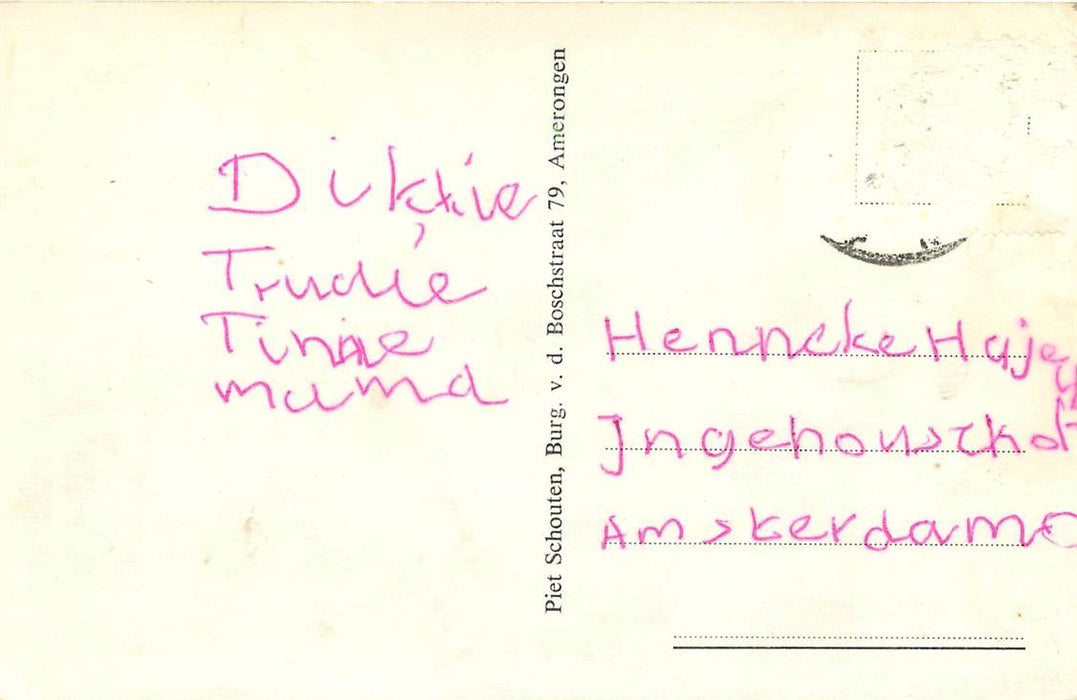 Diktie
Trudie
Tinnie
mama
Piet Schouten, Burg. v. d. Boschstraat 79, Amerongen
Henneke
Ingehouszhof
Amsterdam O